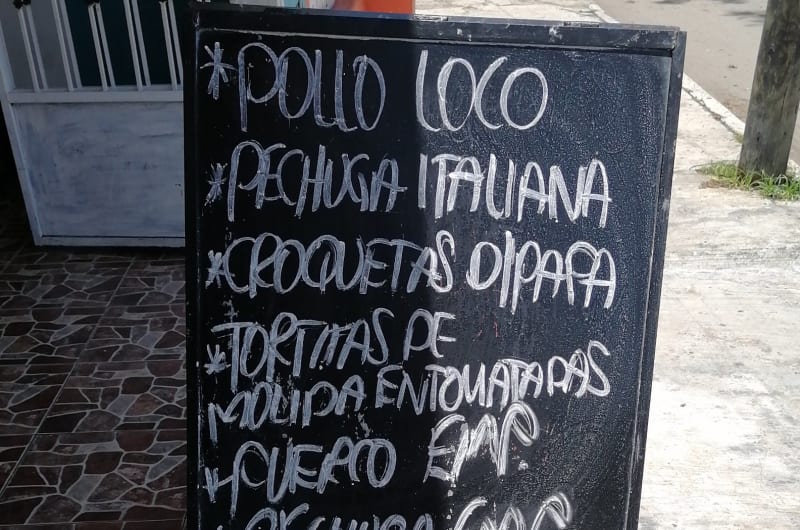 * POLLO LOCO
* PECHUGA ITALIANA
* CROQUETAS D/PAPA
* TORTITAS DE
MOLIDA ENTOMATADAS
* PUERCO EMP
* PECHUGA EMP